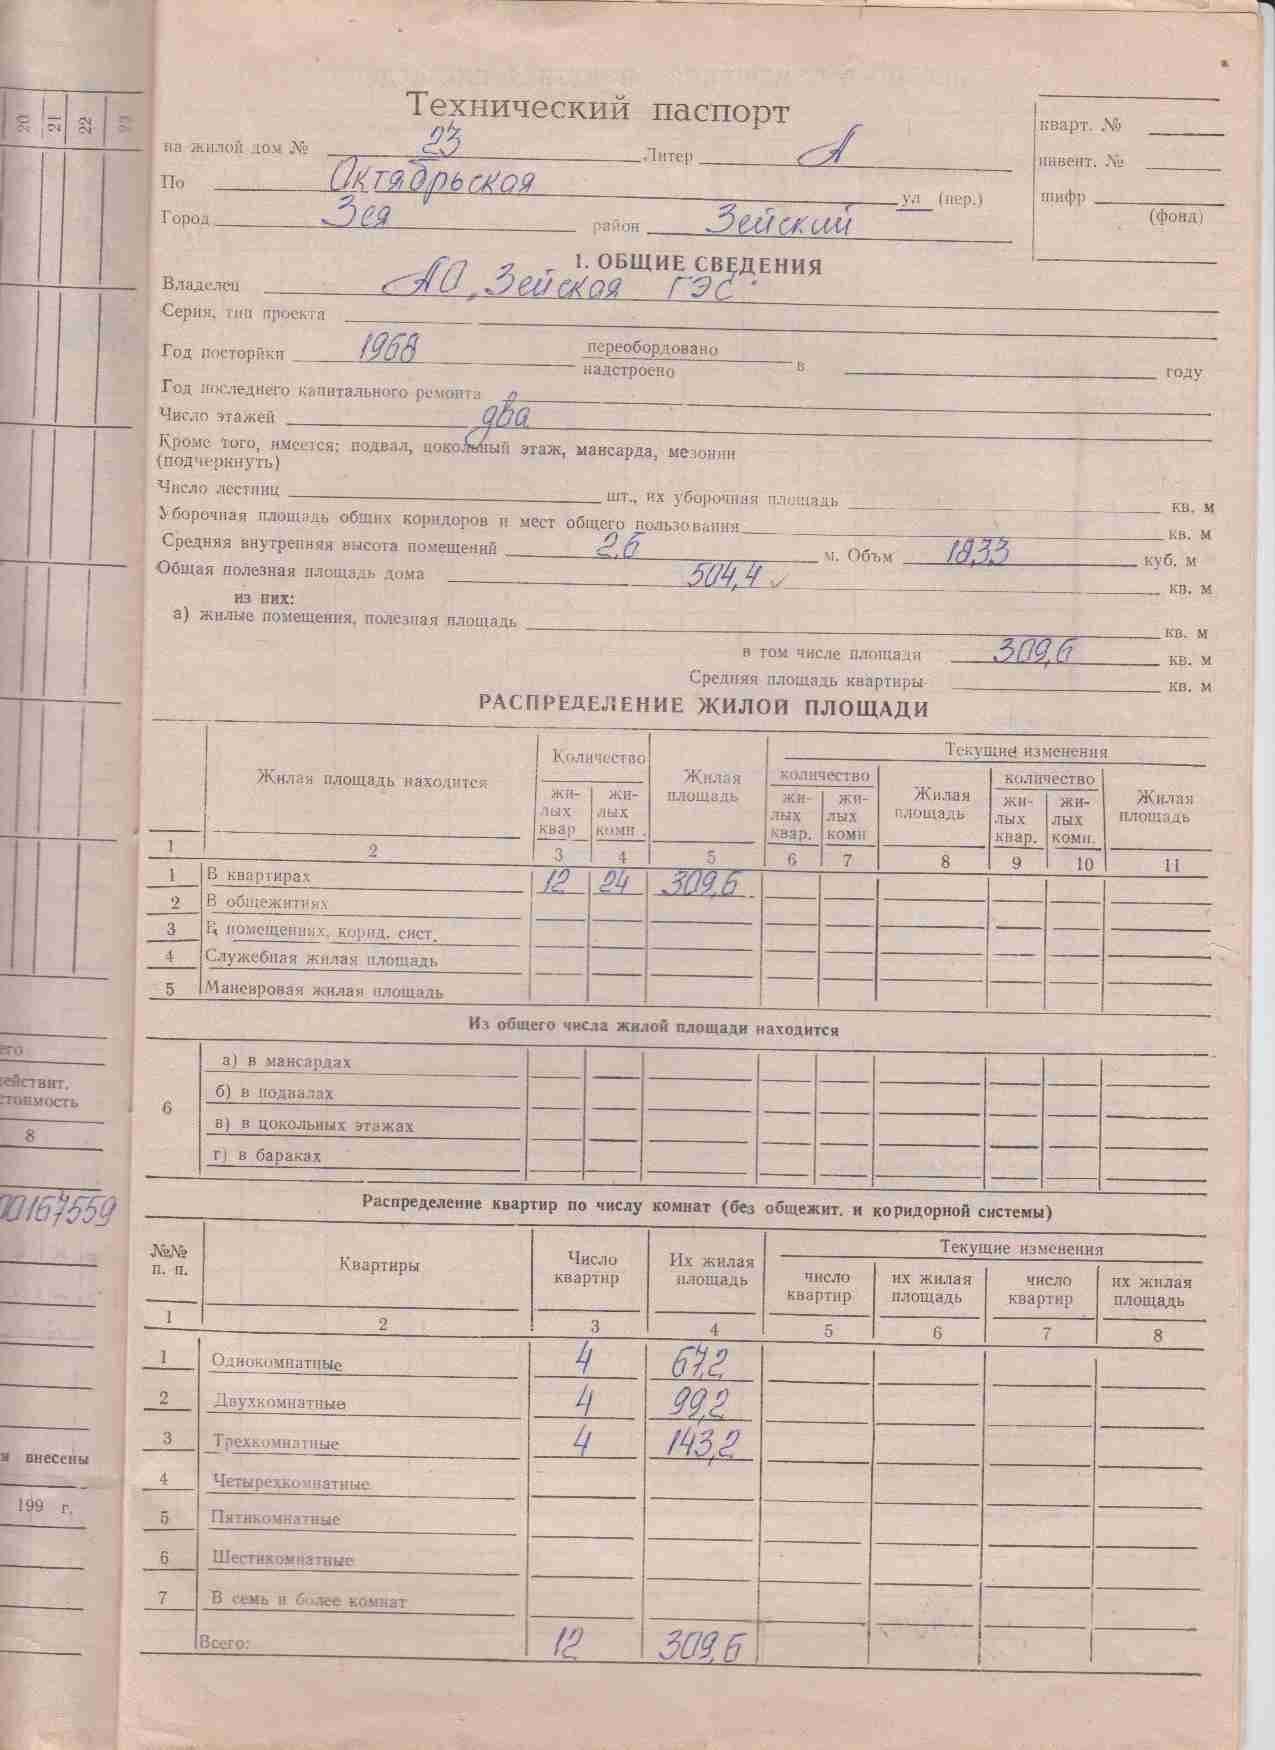 Технический паспорт
на жилой дом № 23 Литер А
кварт. №
инвент. №
По Октябрьская ул (пер.)
шифр
(фонд)
Город Зея район Зейский
1. ОБЩИЕ СВЕДЕНИЯ
Владелец АО „Зейская ГЭС"
Серия, тип проекта
Год посторйки 1968 переобордовано
надстроено в году
Год последнего капитального ремонта
Число этажей два
Кроме того, имеется; подвал, цокольный этаж, мансарда, мезонин
(подчеркнуть)
Число лестниц шт., их уборочная площадь кв. м
Уборочная площадь общих коридоров и мест общего пользования кв. м
Средняя внутренняя высота помещений 2,6 м. Объм 1833 куб. м
Общая полезная площадь дома 504,4 кв. м
из них:
а) жилые помещения, полезная площадь кв. м
в том числе площади 309,6 кв. м
Средняя площадь квартиры кв. м
РАСПРЕДЕЛЕНИЕ ЖИЛОЙ ПЛОЩАДИ
Жилая площадь находится Количество Жилая площадь Текущие изменения
жи-лых квар жи-лых комн. количество жи-лых квар. жи-лых комн Жилая площадь количество жи-лых квар. жи-лых комн. Жилая площадь
1 2 3 4 5 6 7 8 9 10 11
1 В квартирах 12 24 309,6
2 В общежитиях
3 В помещениях, корид. сист.
4 Служебная жилая площадь
5 Маневровая жилая площадь
Из общего числа жилой площади находится
6
а) в мансардах
б) в подвалах
в) в цокольных этажах
г) в бараках
Распределение квартир по числу комнат (без общежит. и коридорной системы)
№№ п. п. Квартиры Число квартир Их жилая площадь Текущие изменения
число квартир их жилая площадь число квартир их жилая площадь
1 2 3 4 5 6 7 8
1 Однокомнатные 4 67,2
2 Двухкомнатные 4 99,2
3 Трехкомнатные 4 143,2
4 Четырехкомнатные
5 Пятикомнатные
6 Шестикомнатные
7 В семь и более комнат
Всего: 12 309,6
20 21 22 23
его
действит.
стоимость
8
00167559
я внесены
199 г.